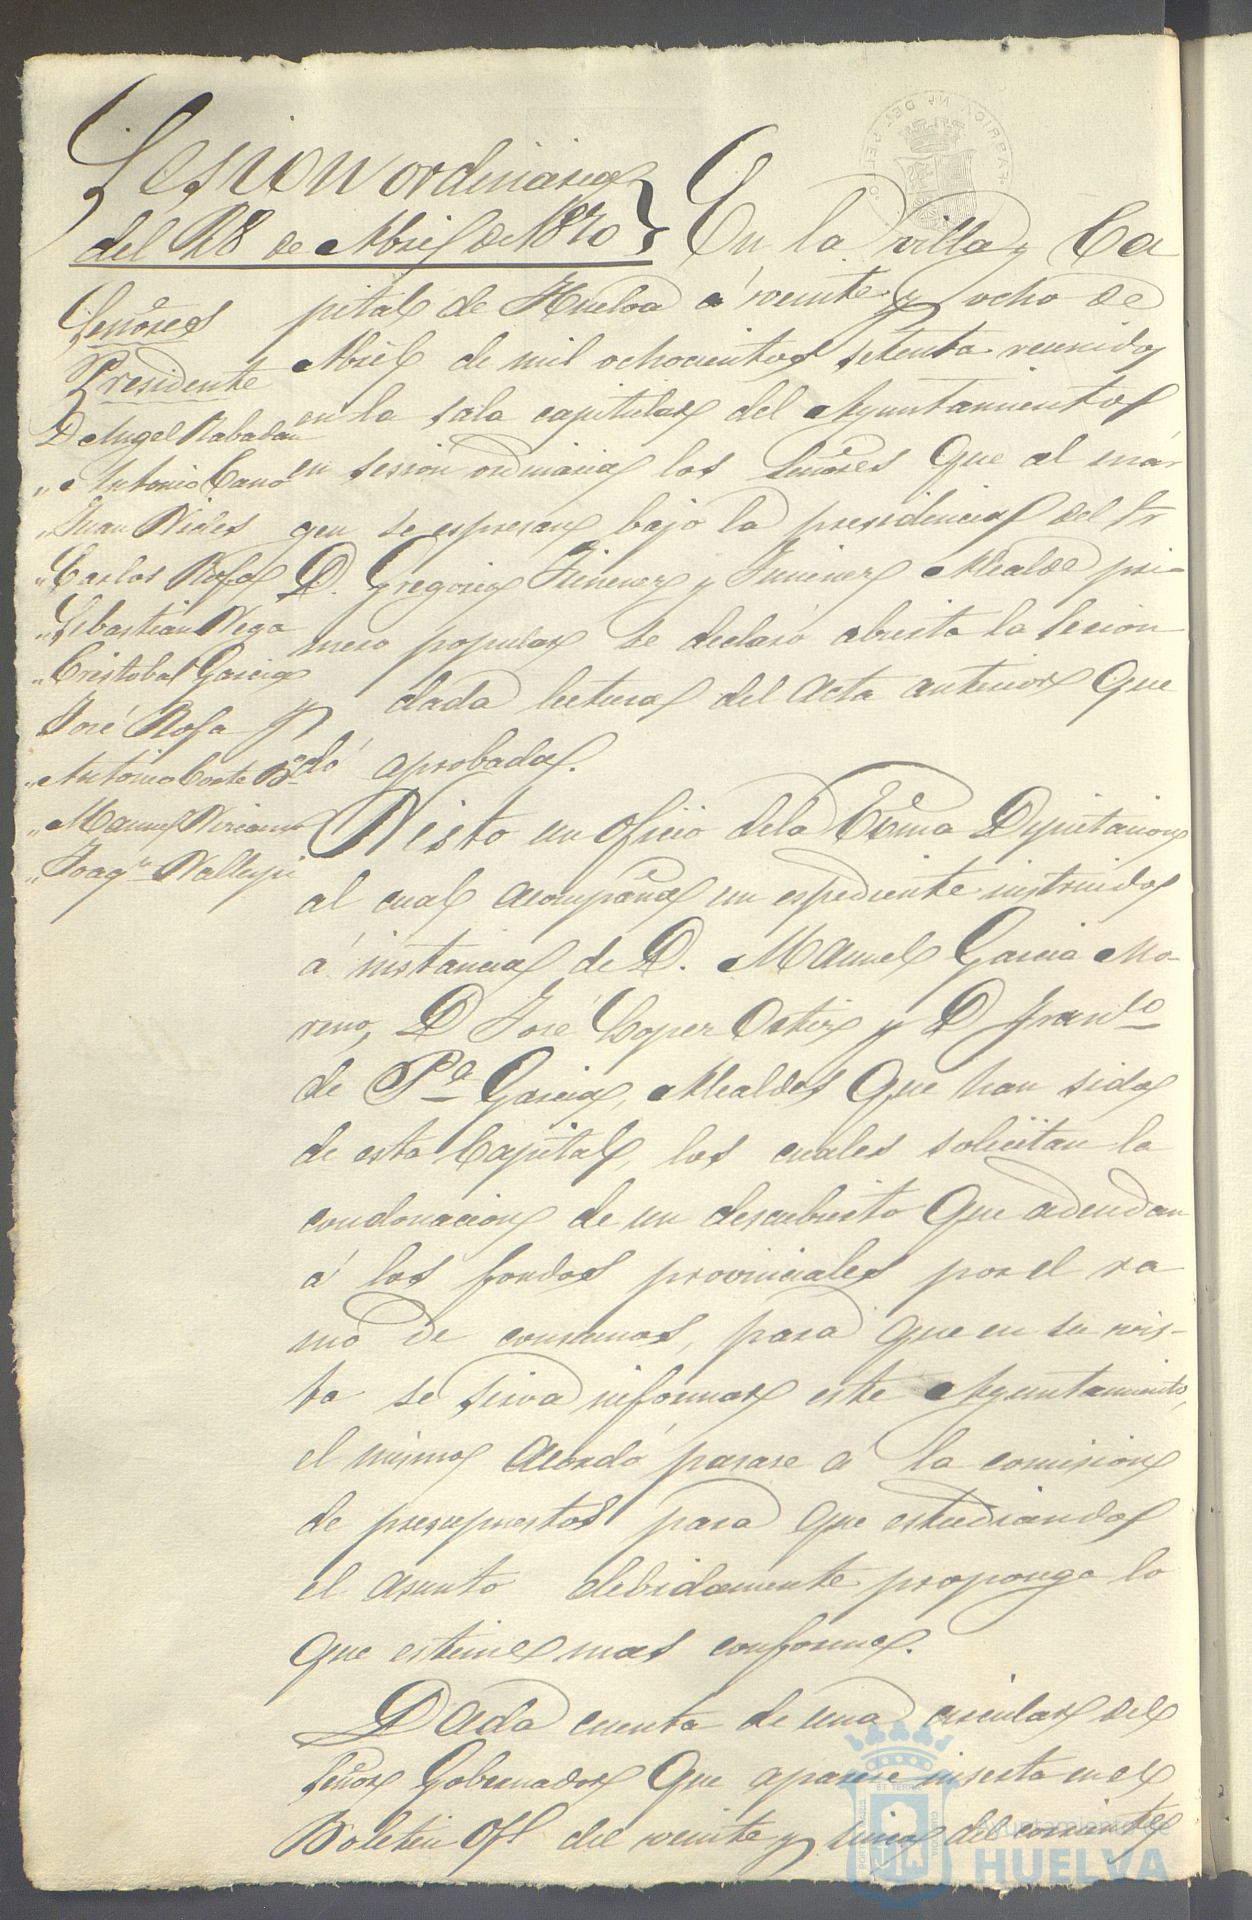 Sesion ordinaria
del 28 de Abril de 1870
En la villa y Ca
Señores
Presidente
D Angel Rabadan
" Antonio Cano
" Juan
" Carlos Rofa
" Sebastian Vega
" Cristobal Garcia
José Rofa
" Antonio Corte
" Manuel
" Joaqn
pital de Huelva á veinte y ocho de
Abril de mil ochocientos setenta reunidos
en la sala capitular del Ayuntamiento
en sesion ordinaria los Señores que al már
gen se espresan bajo la presidencia del Sr
D. Gregorio Jimenez y Jimenez Alcalde pri-
mero popular se declaró abierta la Secion
dada lectura del acta anterior que
dó aprobada.
Visto un oficio de la Excma Diputacion
al cual acompaña un espediente instruido
á instancia de D. Manuel Garcia Mo-
reno, D José Lopez Ortiz y D Franco
de Pa Garcia, Alcaldes que han sido
de esta Capital, los cuales solicitan la
condonacion de un descubierto que adeudan
á los fondos provinciales por el ra
mo de consumos, para que en su vis-
ta se sirva informar este Ayuntamiento,
el mismo acordó pasase á la comision
de presupuestos para que estudiando
el asunto debidamente proponga lo
que estime mas conforme.
Dada cuenta de una circular del
Señor Gobernador que aparece inserta en el
Boletin Ofl del veinte y del corriente
Ayuntamiento de
HUELVA